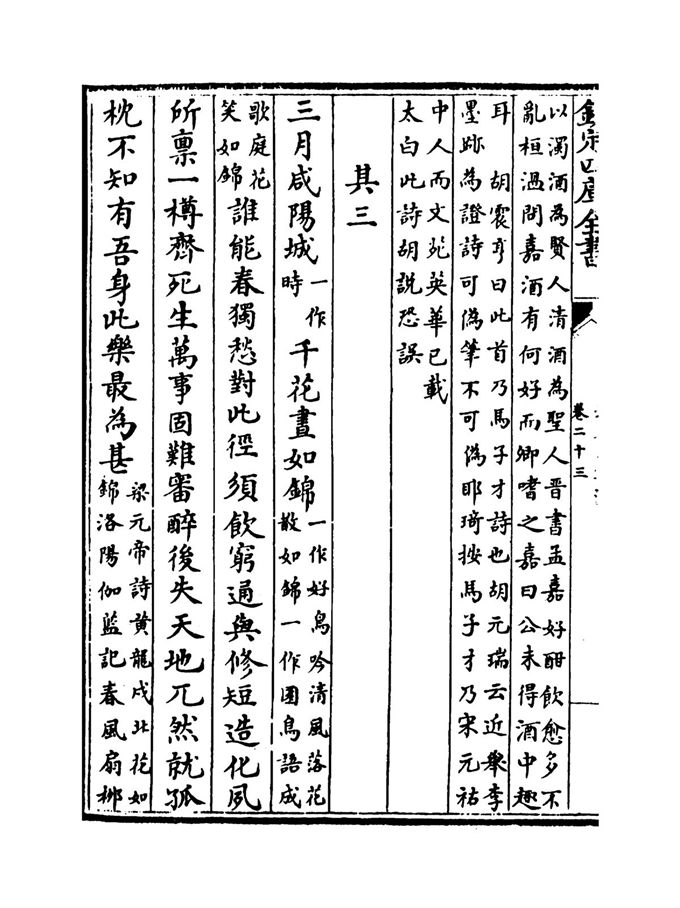 欽定四庫全書
卷二十三
以濁酒為賢人清酒為聖人晋書孟嘉好酣飲愈多不
亂桓溫問嘉酒有何好而卿嗜之嘉曰公未得酒中趣
耳　胡震亨曰此首乃馬子才詩也胡元瑞云近舉李
墨跡為證詩可偽筆不可偽耶琦按馬子才乃宋元祐
中人而文苑英華已載
太白此詩胡說恐誤
其三
三月咸陽城
一作
時
千花晝如錦
一作好鳥吟清風落花
散如錦一作園鳥語成
歌庭花
笑如錦
誰能春獨愁對此徑須飲窮通與修短造化夙
所禀一樽齊死生萬事固難審醉後失天地兀然就孤
枕不知有吾身此樂最為甚
梁元帝詩黄龍戍北花如
錦洛陽伽藍記春風扇栁